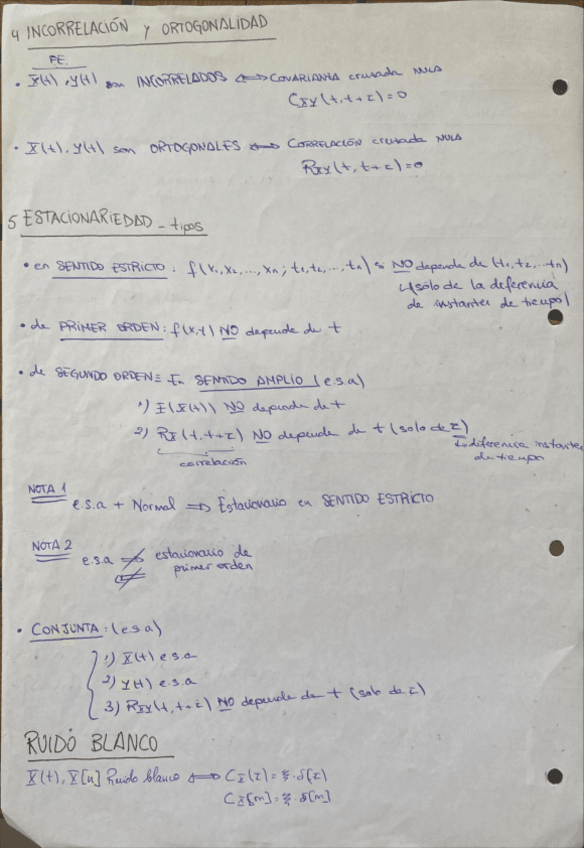 4 INCORRELACIÓN y ORTOGONALIDAD
PE.
• X(t), Y(t) son INCORRELADOS ⟺ COVARIANZA cruzada NULA
C_XY(t, t+τ) = 0
• X(t), Y(t) son ORTOGONALES ⟺ CORRELACIÓN cruzada NULA
R_XY(t, t+τ) = 0
5 ESTACIONARIEDAD - tipos
• en SENTIDO ESTRICTO: f(x₁, x₂, ..., xₙ; t₁, t₂, ..., tₙ) NO depende de (t₁, t₂, ... tₙ)
↳ sólo de la deferencia
de instantes de tiempo)
• de PRIMER ORDEN: f(x,t) NO depende de t
• de SEGUNDO ORDEN ≡ En SENTIDO AMPLIO (e.s.a)
1) E(X(t)) NO depende de t
2) R_X(t, t+τ) NO depende de t (solo de τ)
correlación
↳ diferencia instantes
de tiempo
NOTA 1
e.s.a + Normal ⟹ Estacionario en SENTIDO ESTRICTO
NOTA 2
e.s.a ⇏ estacionario de
⇍ primer orden
• CONJUNTA: (e.s.a)
1) X(t) e.s.a
2) Y(t) e.s.a
3) R_XY(t, t+τ) NO depende de t (solo de τ)
RUIDO BLANCO
X(t), X[n] Ruido blanco ⟺ C_X(τ) = ξ · δ(τ)
C_X[m] = ξ · δ[m]